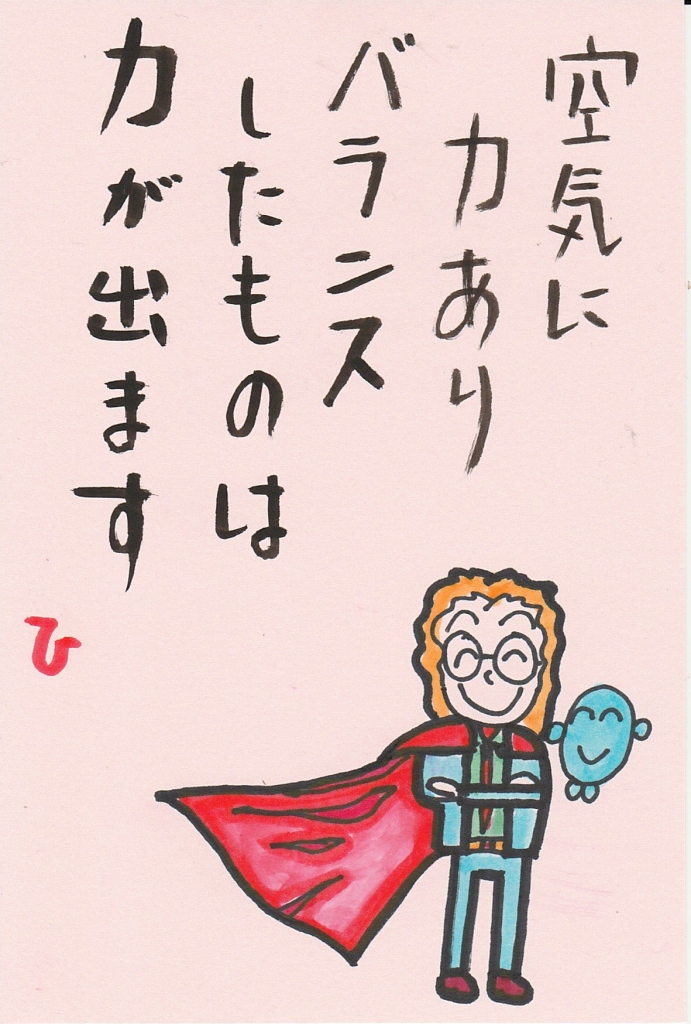 空気に
力あり
バランス
したものは
力が出ます
ひ